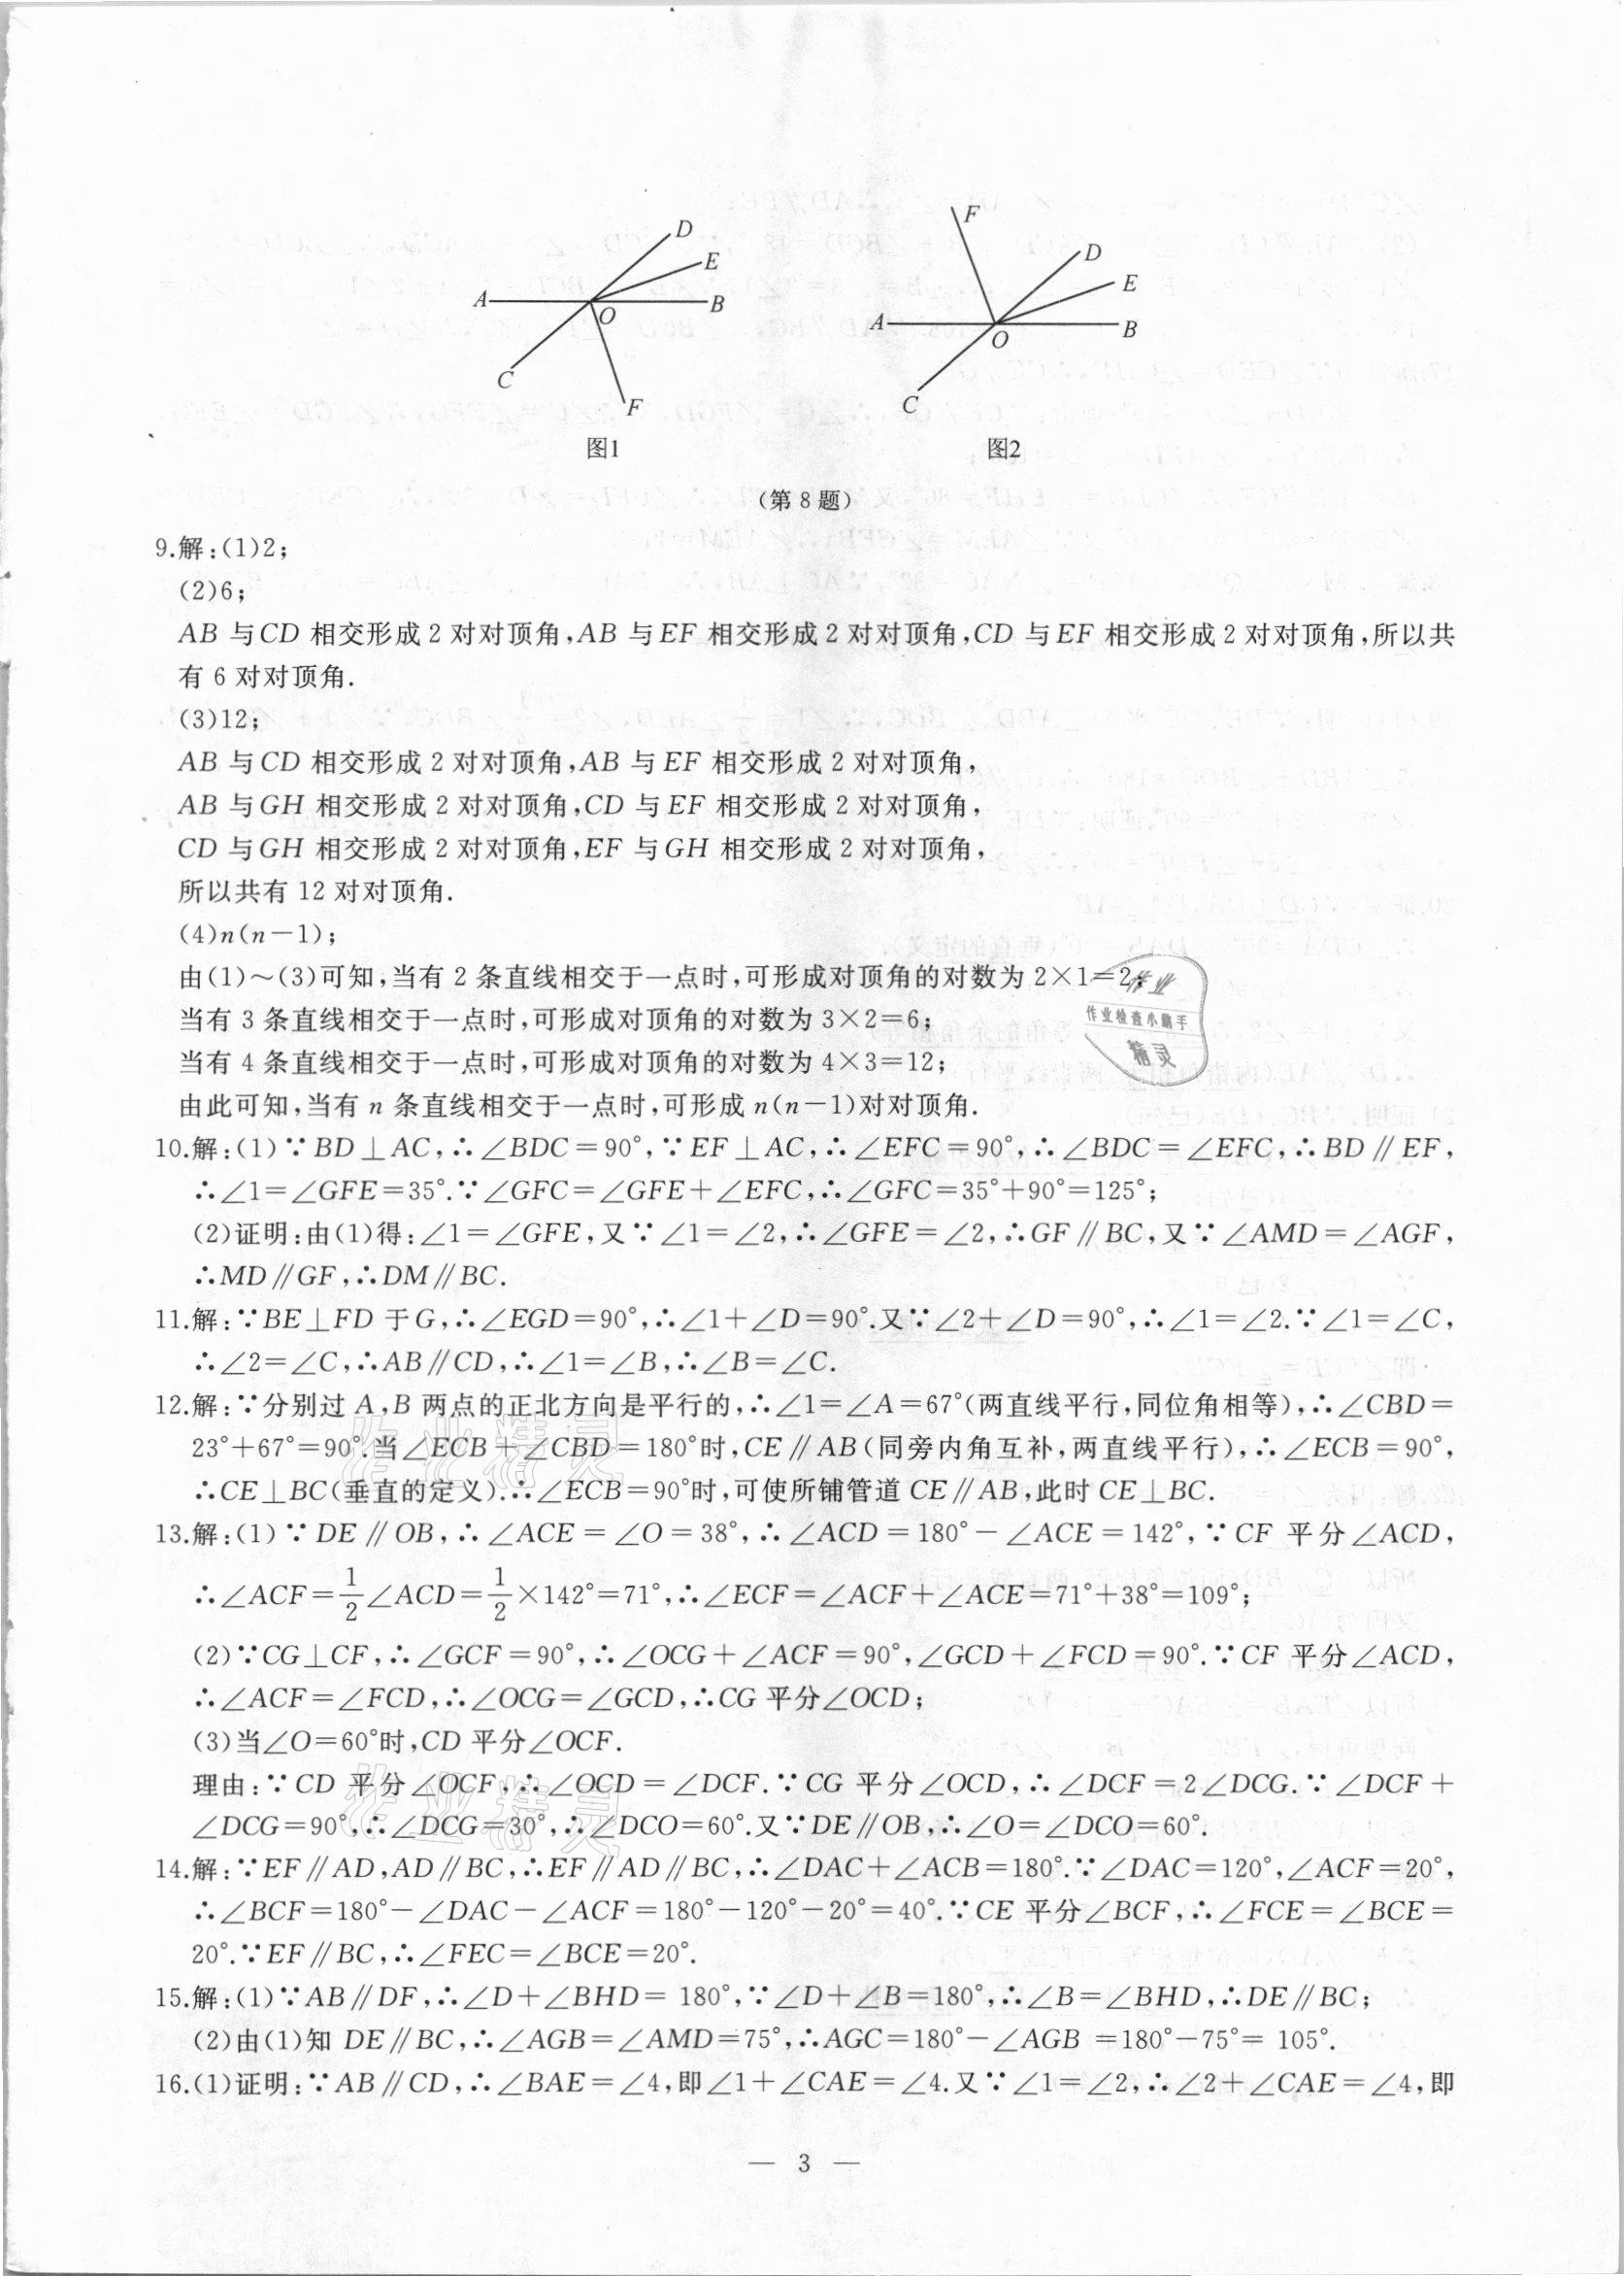 A
D
E
B
O
C
F
图1
F
D
E
A
B
O
C
图2
(第 8 题)
9.解:(1)2;
(2)6;
AB 与CD 相交形成 2 对对顶角,AB 与 EF 相交形成 2 对对顶角,CD 与 EF 相交形成 2 对对顶角,所以共
有 6 对对顶角.
(3)12;
AB 与 CD 相交形成 2 对对顶角,AB 与 EF 相交形成 2 对对顶角,
AB 与 GH 相交形成 2 对对顶角,CD 与 EF 相交形成 2 对对顶角,
CD 与 GH 相交形成 2 对对顶角,EF 与 GH 相交形成 2 对对顶角,
所以共有 12 对对顶角.
(4)n(n-1);
由(1)~(3)可知,当有 2 条直线相交于一点时,可形成对顶角的对数为 2×1=2;
当有 3 条直线相交于一点时,可形成对顶角的对数为 3×2=6;
当有 4 条直线相交于一点时,可形成对顶角的对数为 4×3=12;
由此可知,当有 n 条直线相交于一点时,可形成 n(n-1)对对顶角.
作业
作业检查小助手
精灵
10.解:(1)∵BD⊥AC,∴∠BDC=90°,∵EF⊥AC,∴∠EFC=90°,∴∠BDC=∠EFC,∴BD∥EF,
∴∠1=∠GFE=35°.∵∠GFC=∠GFE+∠EFC,∴∠GFC=35°+90°=125°;
(2)证明:由(1)得:∠1=∠GFE,又∵∠1=∠2,∴∠GFE=∠2,∴GF∥BC,又∵∠AMD=∠AGF,
∴MD∥GF,∴DM∥BC.
11.解:∵BE⊥FD 于 G,∴∠EGD=90°,∴∠1+∠D=90°.又∵∠2+∠D=90°,∴∠1=∠2.∵∠1=∠C,
∴∠2=∠C,∴AB∥CD,∴∠1=∠B,∴∠B=∠C.
12.解:∵分别过 A,B 两点的正北方向是平行的,∴∠1=∠A=67°(两直线平行,同位角相等),∴∠CBD=
23°+67°=90°.当∠ECB+∠CBD=180°时,CE∥AB(同旁内角互补,两直线平行),∴∠ECB=90°,
∴CE⊥BC(垂直的定义).∴∠ECB=90°时,可使所铺管道 CE∥AB,此时 CE⊥BC.
13.解:(1)∵DE∥OB,∴∠ACE=∠O=38°,∴∠ACD=180°-∠ACE=142°,∵CF 平分∠ACD,
∴∠ACF=1/2∠ACD=1/2×142°=71°,∴∠ECF=∠ACF+∠ACE=71°+38°=109°;
(2)∵CG⊥CF,∴∠GCF=90°,∴∠OCG+∠ACF=90°,∠GCD+∠FCD=90°.∵CF 平分∠ACD,
∴∠ACF=∠FCD,∴∠OCG=∠GCD,∴CG 平分∠OCD;
(3)当∠O=60°时,CD 平分∠OCF.
理由:∵CD 平分∠OCF,∴∠OCD=∠DCF.∵CG 平分∠OCD,∴∠DCF=2∠DCG.∵∠DCF+
∠DCG=90°,∴∠DCG=30°,∴∠DCO=60°.又∵DE∥OB,∴∠O=∠DCO=60°.
14.解:∵EF∥AD,AD∥BC,∴EF∥AD∥BC,∴∠DAC+∠ACB=180°.∵∠DAC=120°,∠ACF=20°,
∴∠BCF=180°-∠DAC-∠ACF=180°-120°-20°=40°.∵CE 平分∠BCF,∴∠FCE=∠BCE=
20°.∵EF∥BC,∴∠FEC=∠BCE=20°.
15.解:(1)∵AB∥DF,∴∠D+∠BHD=180°,∵∠D+∠B=180°,∴∠B=∠BHD,∴DE∥BC;
(2)由(1)知 DE∥BC,∴∠AGB=∠AMD=75°,∴AGC=180°-∠AGB=180°-75°=105°.
16.(1)证明:∵AB∥CD,∴∠BAE=∠4,即∠1+∠CAE=∠4.又∵∠1=∠2,∴∠2+∠CAE=∠4,即
— 3 —